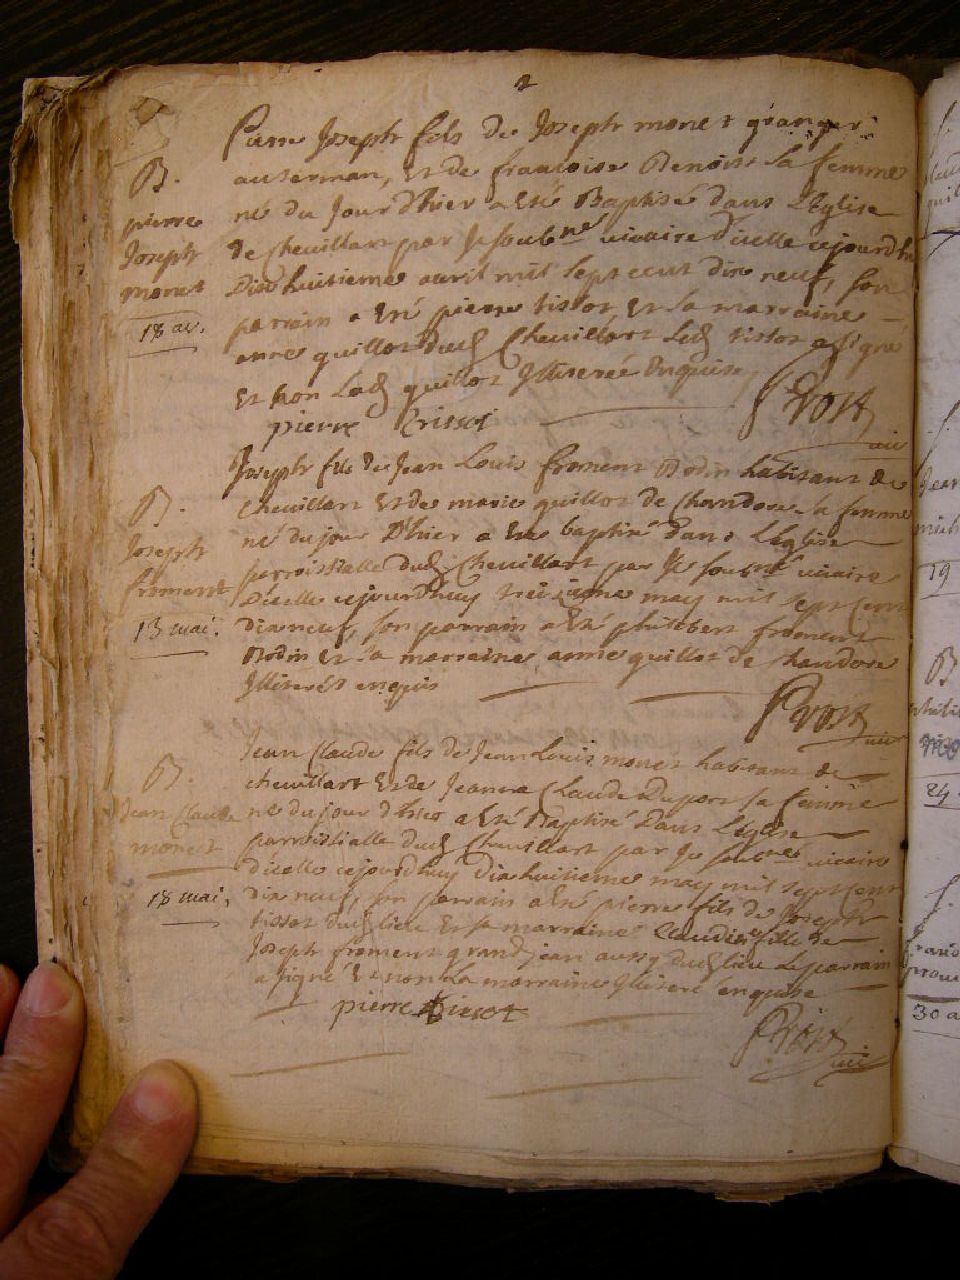 2
pierre Joseph fils de Joseph monet granger
auterman, Et de francoise Benoist sa femme
B.
pierre
Joseph
monet
18 av.
né du Jour d'hier a Eté Baptisé dans L'Eglise
de Chevillart par Je soubné vicaire d'icelle cejourdhuy
Dix huitieme avril mil sept cent dix neuf, son
parrain a Eté pierre tissot, Et la marraine
anne quillot dud Chevillart Led tissot a signé
Et non Lad quillot Illiterée Enquise
pierre Trissot
Prost
vic
B.
Joseph
froment
13 mai.
Joseph fils de Jean Louis froment Bodin habitant de
Chevillart Et de marie quillot de Chandore sa femme
né du jour D'hier a Eté baptisé dans L'eglise
parroissialle dud Chevillart par Je soubné vicaire
d'icelle cejourdhuy treizieme may mil sept Cent
dix neuf, son parrain a Eté philibert froment
Bodin Et sa marraine anne quillot de Chandore
Illiterés enquis
Prost
vic
B.
Jean Claude
monet
18 mai.
Jean Claude fils de Jean Louis monet habitant de
chevillart Et de Jeanne Claude Dupont sa femme
né du jour d'hier a Eté Baptisé Dans L'eglise
parroissialle dud Chevillart par Je soubné vicaire
d'icelle cejourdhuy Dix huitieme may mil sept Cent
dix neuf, son parrain a Eté pierre fils de Joseph
tissot dud lieu Et sa marraine Claudine fille de
Joseph froment grandjean aussy dud lieu Le parrain
a signé Et non La marraine Illiteré enquise
pierre tissot
Prost
vic